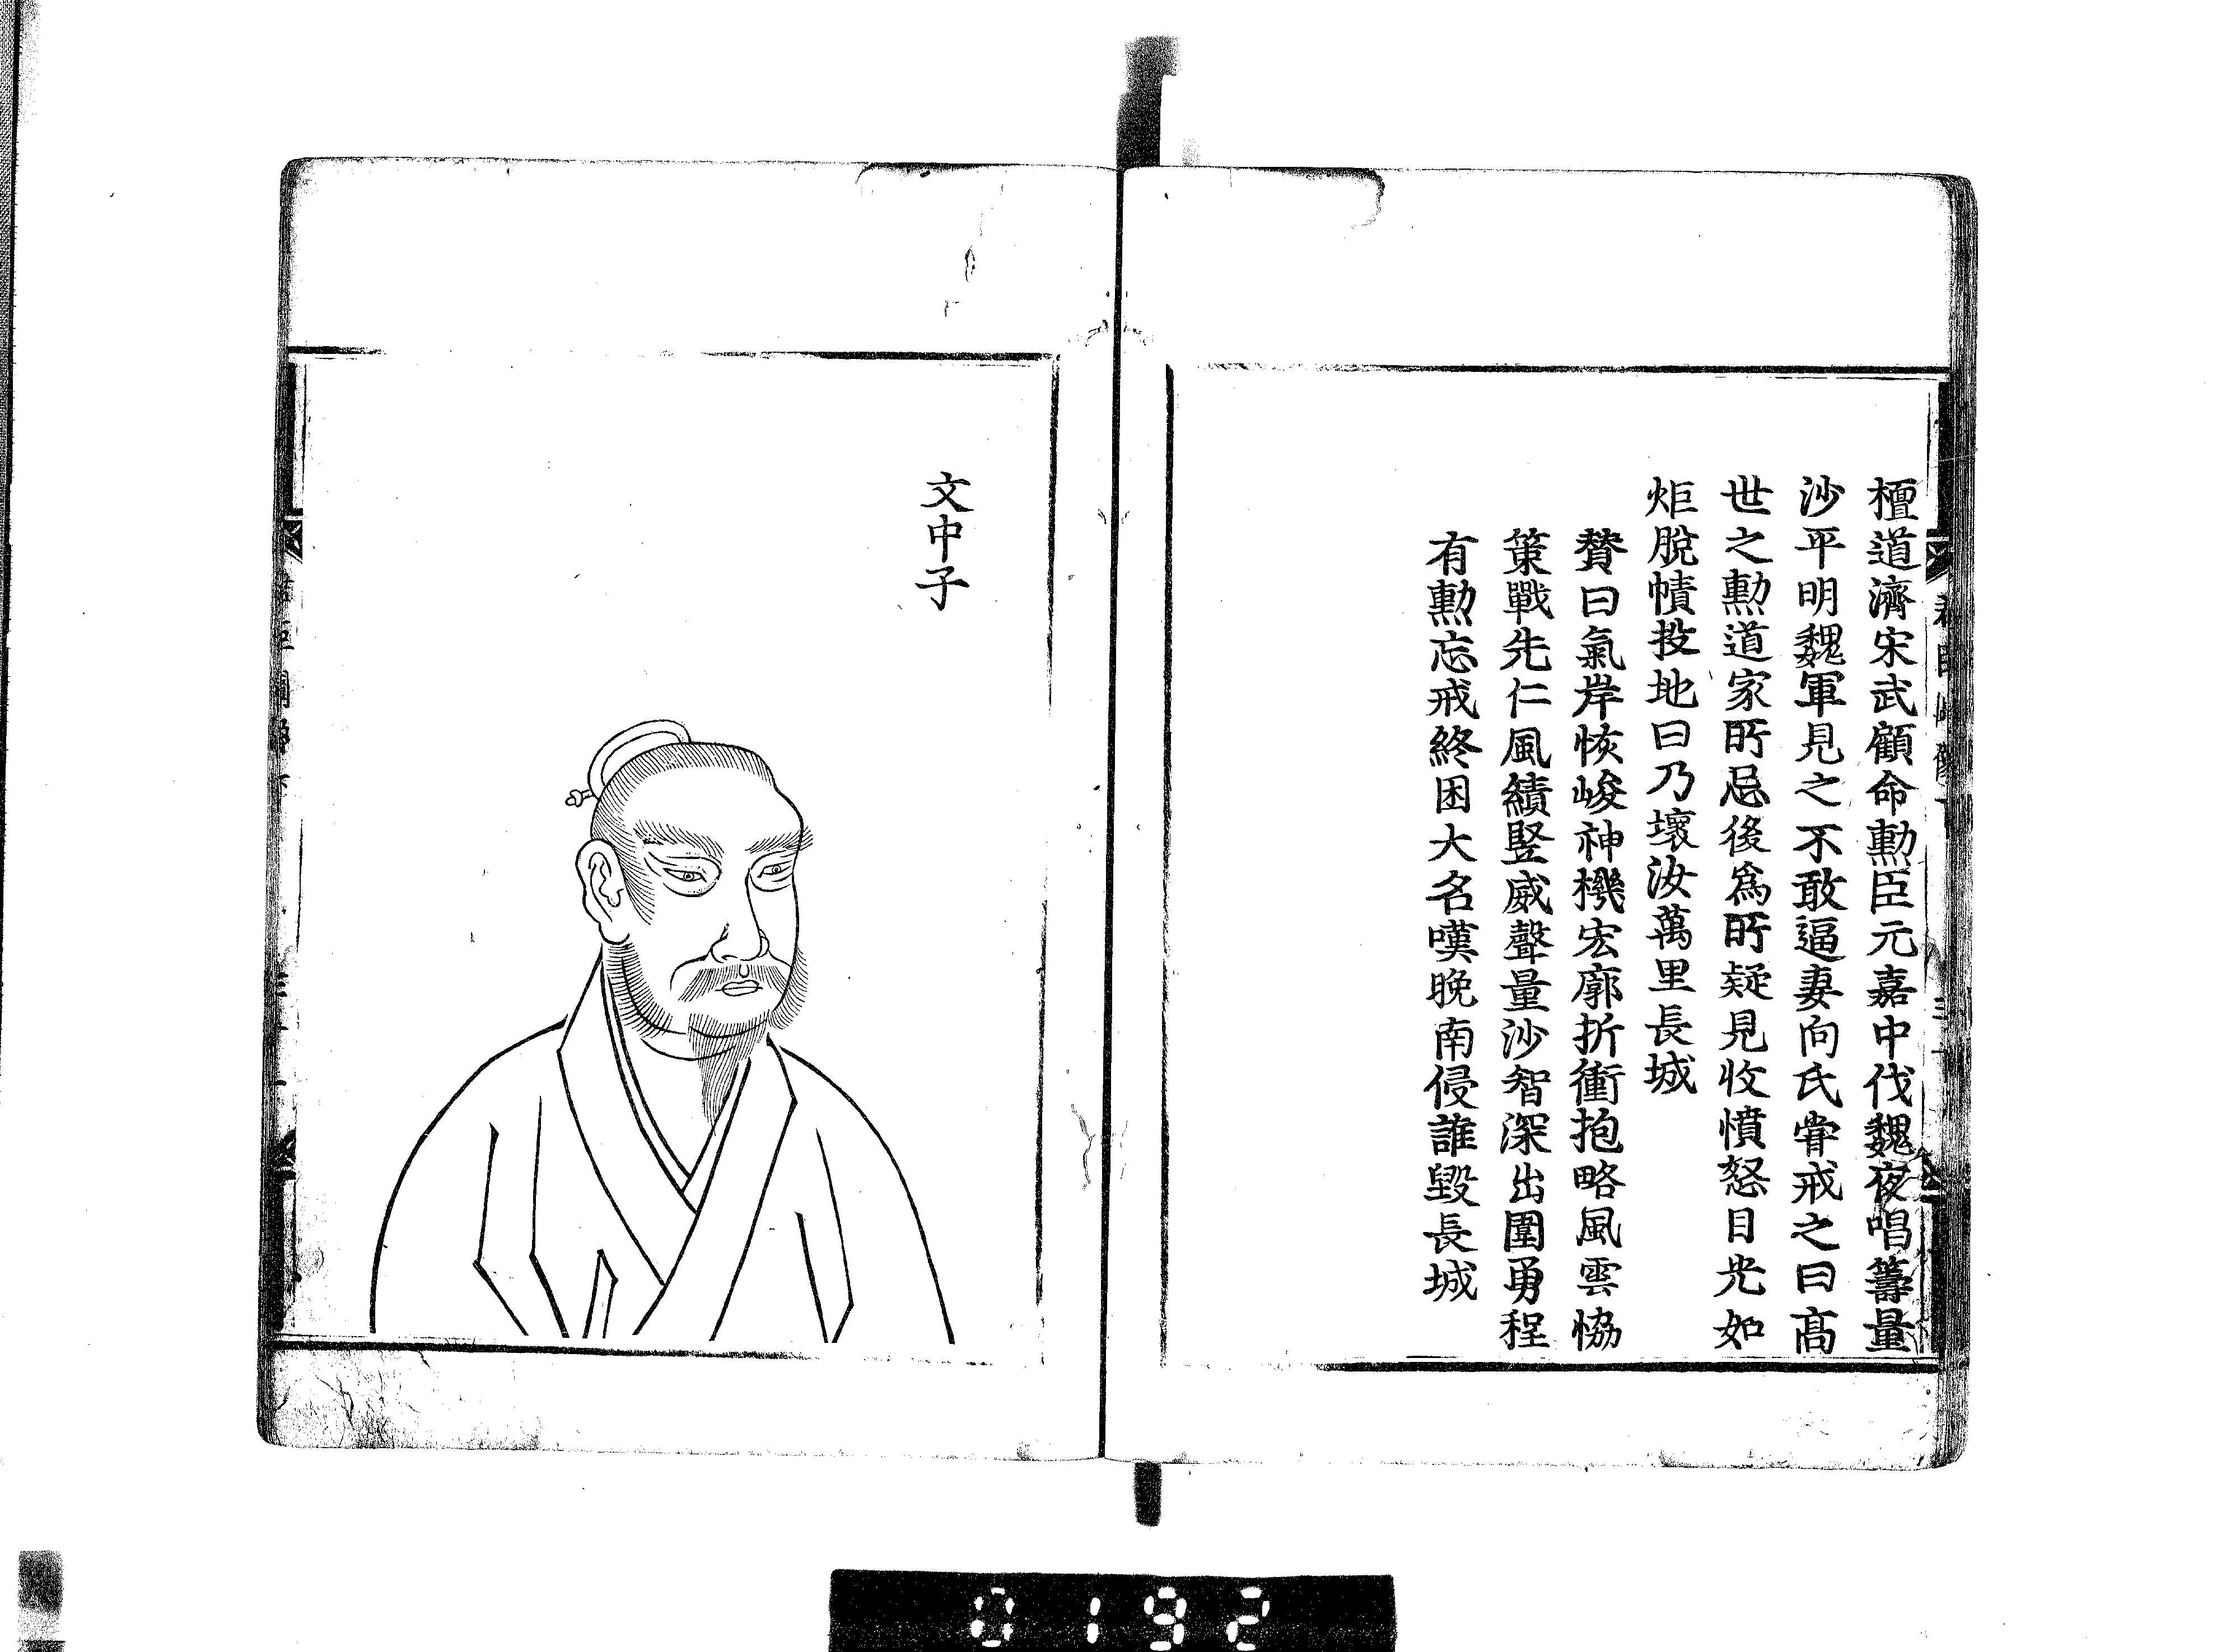 檀道濟宋武顧命勲臣元嘉中伐魏夜唱籌量
沙平明魏軍見之不敢逼妻向氏甞戒之曰高
世之勲道家所忌後爲所疑見收憤怒目光如
炬脫幘投地曰乃壞汝萬里長城
賛曰氣岸恢峻神機宏廓折衝抱略風雲恊
策戰先仁風績竪威聲量沙智深出圍勇程
有勲忘戒終困大名嘆晚南侵誰毀長城
文中子
0192